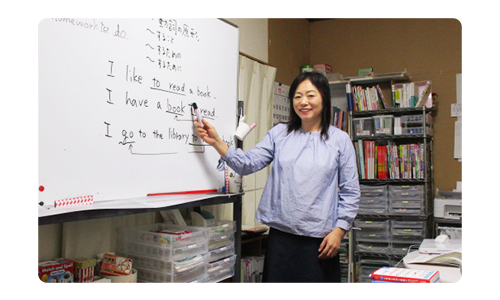 Homework is do.
to 動詞の原形
～すること
～するための
～するために
I like to read a book.
I have a book to read
I go to the library to